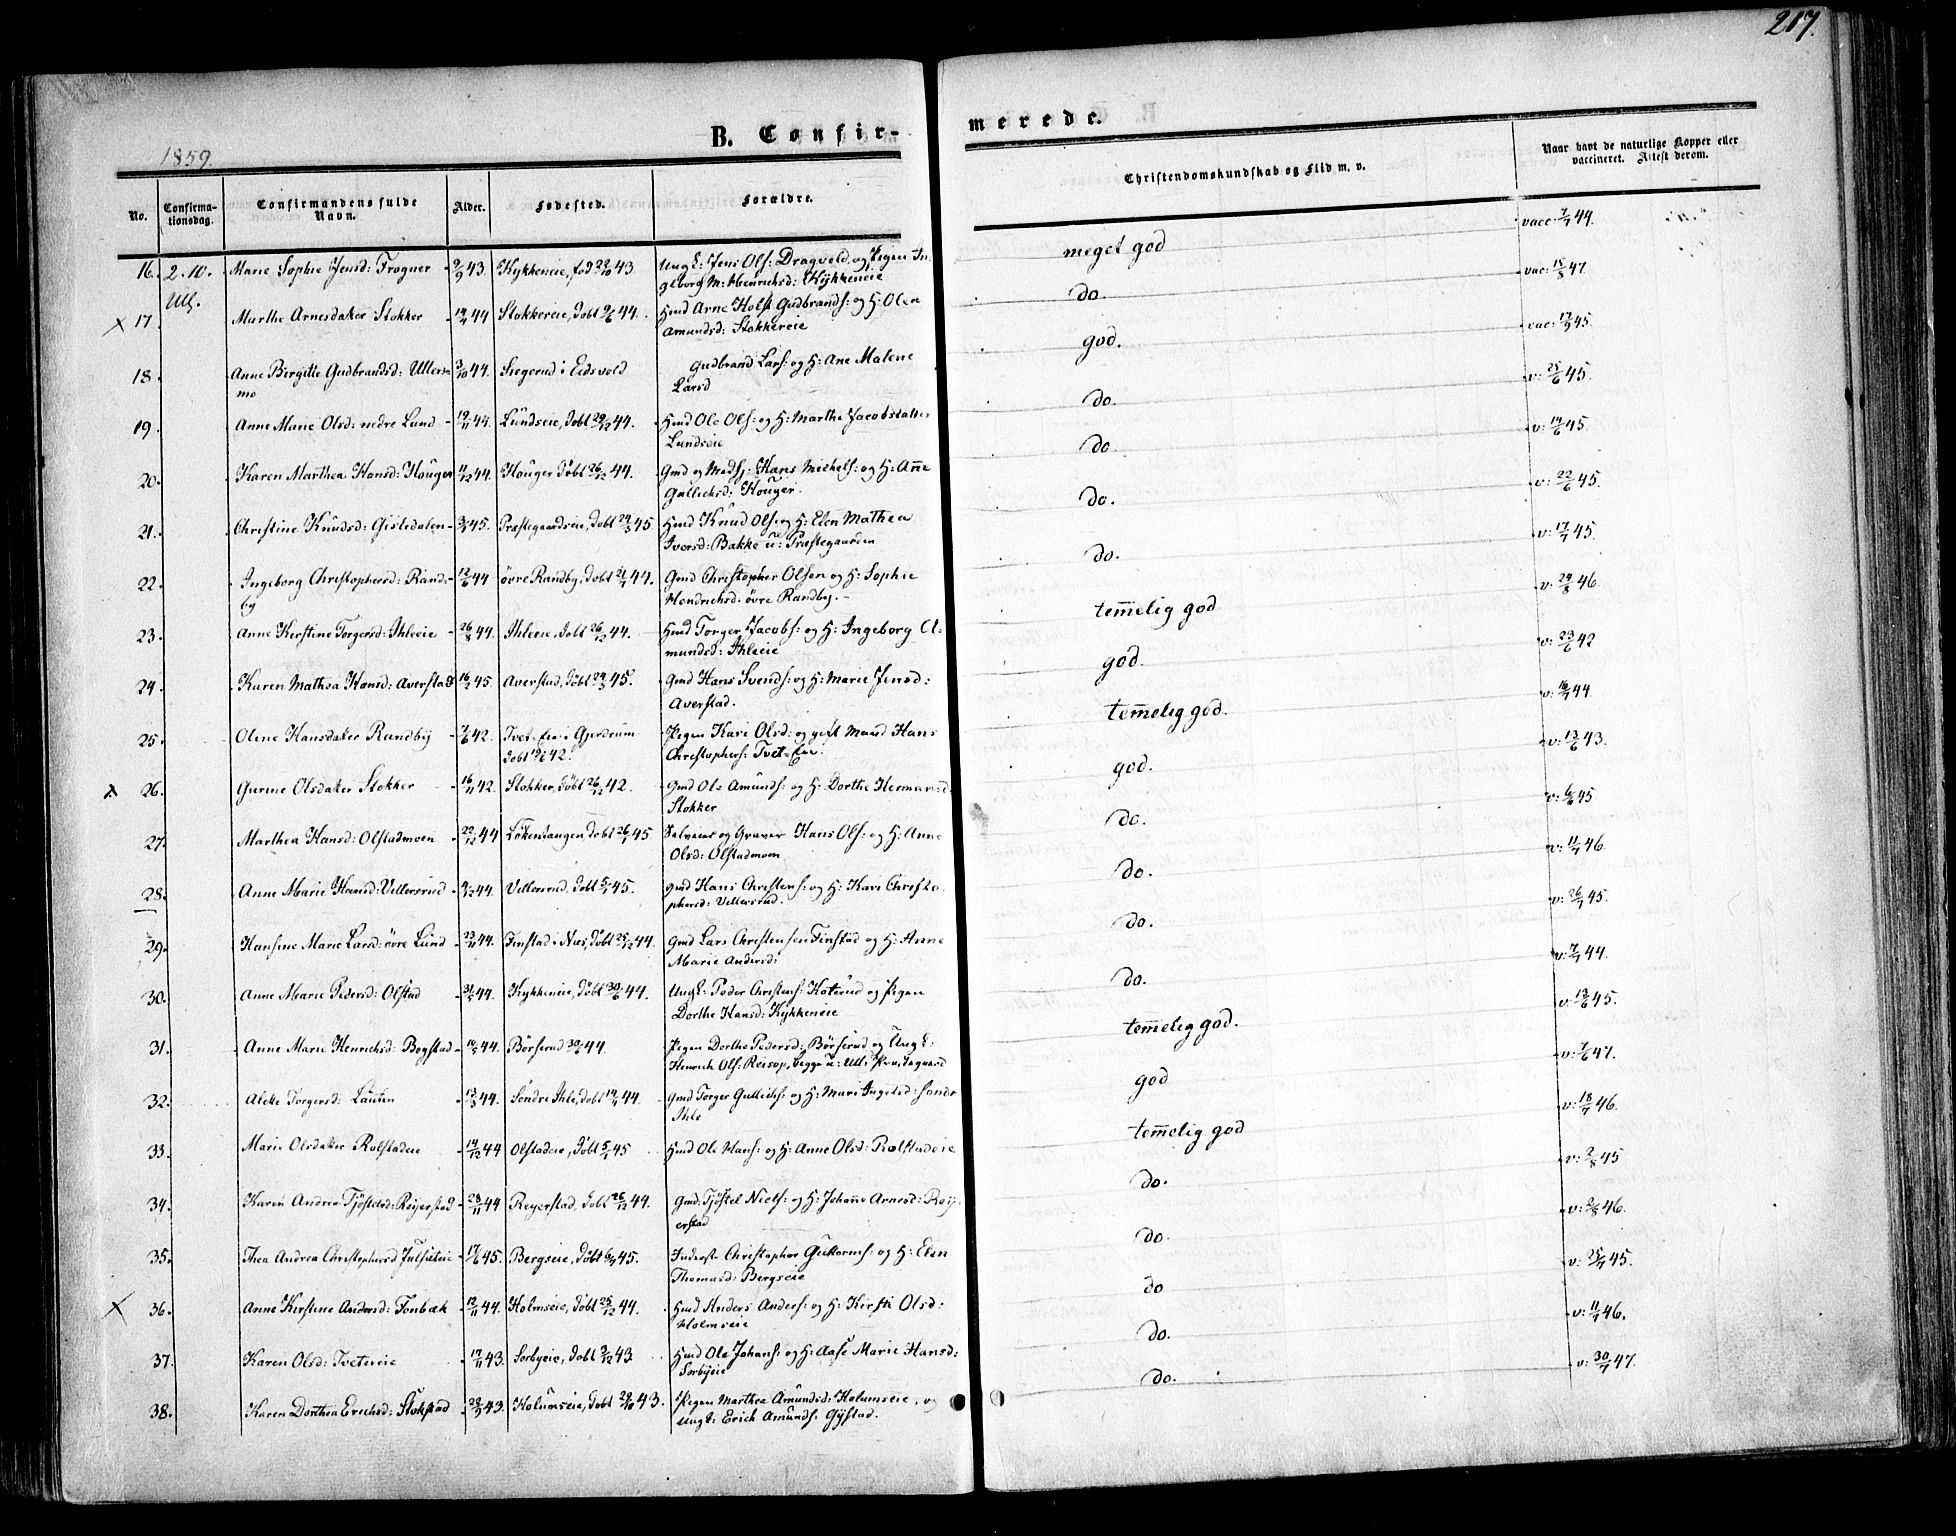 217.
1859.
B. Confir-
merede.
No.
Confirma-
tionsdag.
Confirmandens fulde
Navn.
Alder.
Fødested.
Forældre.
Christendomskundskab og Flid m. v.
Naar havt de naturlige Kopper eller
vaccineret. Attest derom.
16. 2. 10. Marie Sophie Jensd: Frogner 43. Kykkeneie, fød 43 Ungk: Jens Ols: Dragveld og Pigen In-
geborg M: Henrichsd: Kykkeneie
meget god vacc: 7/7 44.
Ull.
17. Marthe Arnesdatter Stokker 44 Stokkereie, døbt 44. Hmd Arne Holst Gudbrands: og H: Olea
Amundsd: Stokkereie
do. vac: 15/8 47
18. Anne Birgitte Gudbrandsd: Ullers- 3/10 44. i Eidsvold Gudbrand Lars: og H: Ane Malene
mo Larsd
god. vac: 17/9 45.
19. Anne Marie Olsd: nedre Lund 19/11 44. Lundseie, døbt 29/12 44. Hmd Ole Ols: og H: Marthe Jacobsdatter
Lundseie
do. v: 25/6 45.
20. Karen Marthea Hansd: Houger 11/12 44. Houger døbt 26/12 44. Gmd og Medhj: Hans Michels: og H: Anne
Gullichsd: Houger.
do v: 14/6 45.
21. Christine Knudsd: Gisledalen 45. Præstegaardseie, døbt 24/3 45 Hmd Knud Ols: og H: Elen Mathea
Iversd: Bakke u: Præstegaarden
do. v: 22/6 45.
22. Ingeborg Christophersd: Rand- 12/6 44 övre Randby, døbt 21/7 44. Gmd Christopher Olsen og H: Sophie
by Hendrichsd: övre Randby.
do. v: 17/7 45.
23. Anne Kirstine Torgersd: Ihleeie 26/8 44. Ihleeie, døbt 26/12 44. Hmd Torger Jacobs: og H: Ingeborg A-
mundsd: Ihleeie
temmelig god v: 29/8 46.
24. Karen Mathea Hansd: Averstad 16/2 45. Averstad, døbt 24/3 45. Gmd Hans Svends: og H: Marie Jensd:
Averstad.
god. v: 23/6 42
25. Oline Hansdatter Randby 7/6 42. Tvet-Eie i Gjerdrum Pigen Kari Olsd: og gift Mand Hans
døbt 42. Christophers: Tvet-Eie.
temmelig god. v: 16/7 44.
26. Gurine Olsdatter Stokker 16/11 42. Stokker, døbt 26/12 42. Gmd Ole Amunds: og H: Dorthe Hermansd:
Stokker
god. v: 13/6 43.
27. Marthea Hansd: Olstadmoen 22/12 44 Lökentangen døbt 26/1 45 Selveier og Graver Hans Ols: og H: Anne
Olsd: Olstadmoen
do. v: 6/6 45
28. Anne Marie Hansd: Vellersrud 44. Vellersrud, døbt 5/1 45. Gmd Hans Christens: og H: Kari Christo-
phersd: Vellersrud.
do. v: 11/7 46.
29. Hansine Marie Larsd: övre Lund 23/11 44. Finstad i Næs, døbt 25/12 44. Gmd Lars Christensen Finstad og H: Anne
Marie Andersd:
do. v: 26/7 45.
30. Anne Marie Pedersd: Olstad 31/5 44. Kykkeneie, døbt 30/6 44. Ungk: Peder Christens: Koterud og Pigen
Dorthe Hansd: Kykkeneie
do. v: 7/7 44.
31. Anne Marie Henrichsd: Bogstad 44. Börserud 44. Pigen Dorthe Pedersd: Börserud og Ungk:
Henrich Ols: Reisop, begge u: Ull:
temmelig god. v: 13/6 45.
32. Alette Torgersd: Lauten 13/3 44. Söndre Ihle, døbt 14/4 44. Gmd Torger Gulliks: og H: Mari Ingelsd: söndr
Ihle
god v: 7/6 47.
33. Marie Olsdatter Rolstadeie 14/12 44 Olstadeie, døbt 5/1 45 Hmd Ole Hans: og H: Anne Olsd: Rolstadeie
temmelig god v: 18/7 46.
34. Karen Andrea Tjöstelsd: Reyerstad 28/11 44 Reyerstad, døbt 26/12 44. Gmd: Tjöstel Niels: og H: Johanne Arnesd: Rey-
erstad
do. v: 2/8 45
35. Thea Andrea Christophersd Julsæteie 45. Bergseie, døbt 45. Inderste Christopher Guttorms: og H: Elen
Thomasd: Bergseie
do. v: 2/8 46.
36. Anne Kirstine Andersd: Fonbæk 12/11 44. Holmseie, døbt 25/12 44. Hmd Anders Anders: og H: Kirsti Olsd:
Holmseie
do v: 25/7 45.
37. Karen Olsd: Tveteeie 43. Sorbyeie, døbt 43. Hmd Ole Johans: og H: Aase Marie Hansd:
Sorbyeie
do. v: 11/7 46.
38. Karen Dorthea Erichsd: Slokstad 43. Holumseie, døbt 29/10 43. Pigen Marthea Amundsd: Holumseie, og
Ungk: Erich Amunds: Gystad.
do. v: 30/7 47.